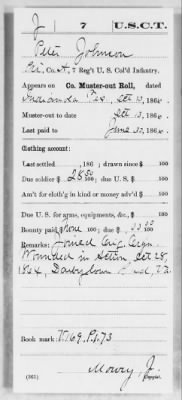 J | 7 | U.S.C.T.
Peter Johnson
Pvt, Co. A, 7 Reg't U. S. Col'd Infantry.
Appears on Co. Muster-out Roll, dated
Indianola Tex, Oct 13, 186
Muster-out to date Oct 13, 186
Last paid to June 30, 186
Clothing account:
Last settled , 186 ; drawn since $ 100
Due soldier $ 100; due U. S. $ 100
Am't for cloth'g in kind or money adv'd $ 100
Due U. S. for arms, equipments, &c., $ 100
Bounty paid $ None 100; due $ 100
Remarks: Joined Regn.
Wounded in action, Oct 28,
1864, Darbytown Road, Va.
Book mark:
Mowry, J.
(361) Copyist.